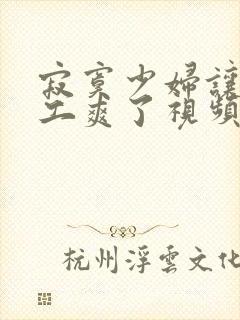 寂寞少婦讓
工爽了視頻
杭州浮雲文化